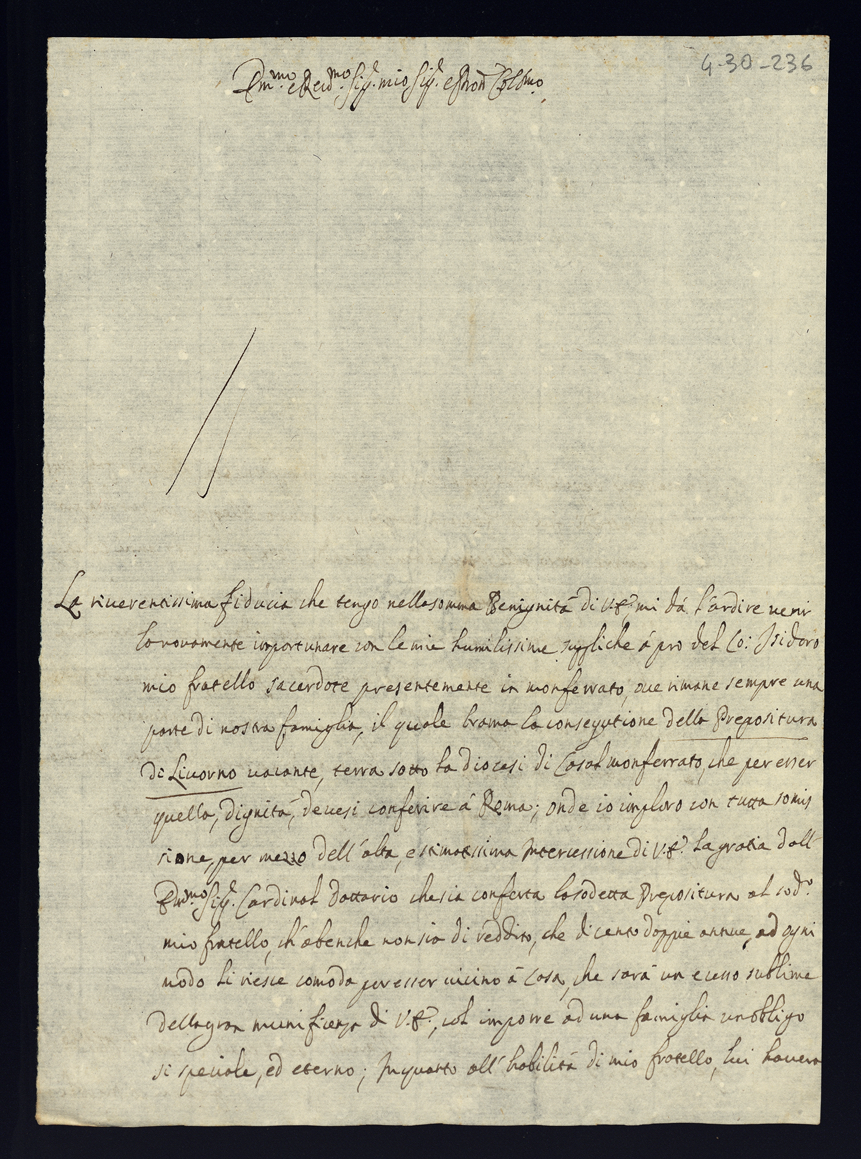 4-30-236
Em.mo e Reu.mo Sig.r mio Sig.r e Pron Col.mo
La riuerentissima fiducia che tengo nella somma Benignitá di V.E. mi dá l'ardire uenir
la nouamente importunare con le mie humilissime suppliche á pro del Co: Isidoro
mio fratello sacerdote presentemente in monferrato, oue rimane sempre una
parte di nostra famiglia, il quale brama la consegutione della Prepositura
di Liuorno uacante, terra sotto la diocesi di Casal monferrato, che per esser
quella, dignitá, deuesi conferire á Roma; onde io imploro con tutta somis
sione, per mezzo dell'alta, e stimatissima Intercessione di V.E. la gratia dall'
Em.mo Sig.r Cardinal Dattario che sia conferta la sodetta Prepositura al sod.o
mio fratello, ch'abenche non sia di reddito, che di cento doppie annue, ad ogni
modo li riesce comoda per esser uicino á Casa, che sará un ecesso sublime
della gran munificenza di V.E., col imporre ad una famiglia un obbligo
si speciale, ed eterno; In quanto all'habilitá di mio fratello, lui hauera